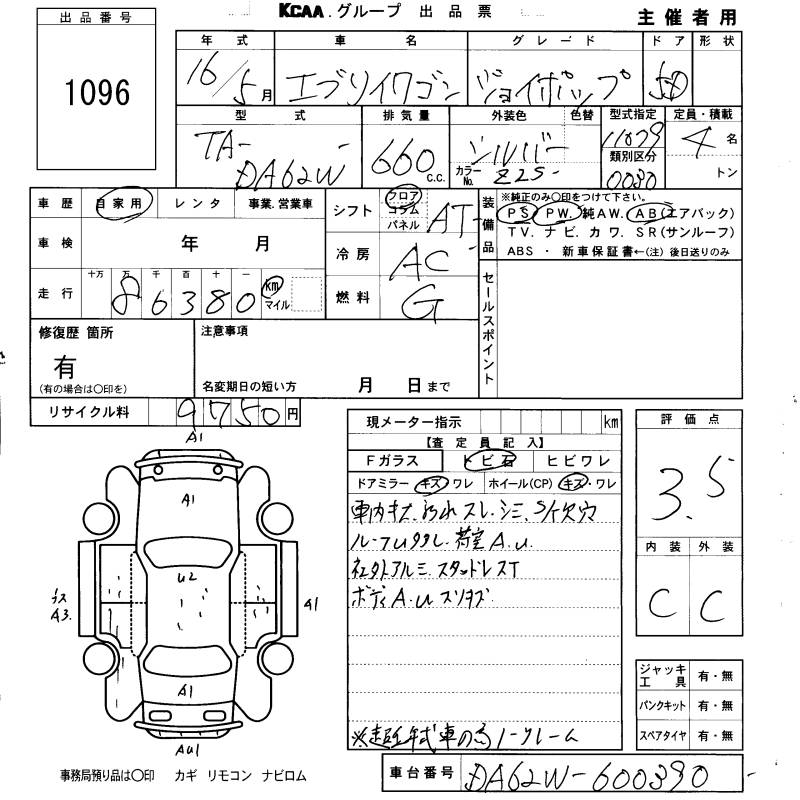 KCAA.グループ 出品票
主催者用
出品番号
1096
年式 車名 グレード ドア 形状
16/5月 エブリイワゴン ジョイポップ 5D
型式 排気量 外装色 色替 型式指定 定員・積載
TA-DA62W 660c.c. シルバー 11079 4名
カラーNo. Z2S- 類別区分 0030 トン
車歴 自家用 レンタ 事業.営業車
車検 年 月
走行 十万 万 千 百 十 一
86380 km マイル
シフト フロア コラム パネル AT
冷房 AC
燃料 G
装備品 ※純正のみ〇印をつけて下さい。
PS PW. 純AW. AB(エアバック)
TV. ナビ. カワ. SR(サンルーフ)
ABS ・ 新車保証書←(注) 後日送りのみ
セールスポイント
修復歴 箇所
有
(有の場合は〇印を)
注意事項
名変期日の短い方 月 日まで
リサイクル料 9750円
現メーター指示 km
【査定員記入】
Fガラス トビ石 ヒビワレ
ドアミラー キズ・ワレ ホイール(CP) キズ・ワレ
車内キズ.汚れスレ.シミ.S/欠穴
ルーフU
荷室A.u.
社外アルミ.スタッドレスT
ボディA.u スリキズ
※超低年式車の為ノークレーム
評価点
3.5
内装 外装
C C
ジャッキ工具 有・無
パンクキット 有・無
スペアタイヤ 有・無
車台番号 DA62W-600390
A1
A1
U2
A3.
A1
A1
AU1
事務局預り品は〇印 カギ リモコン ナビロム